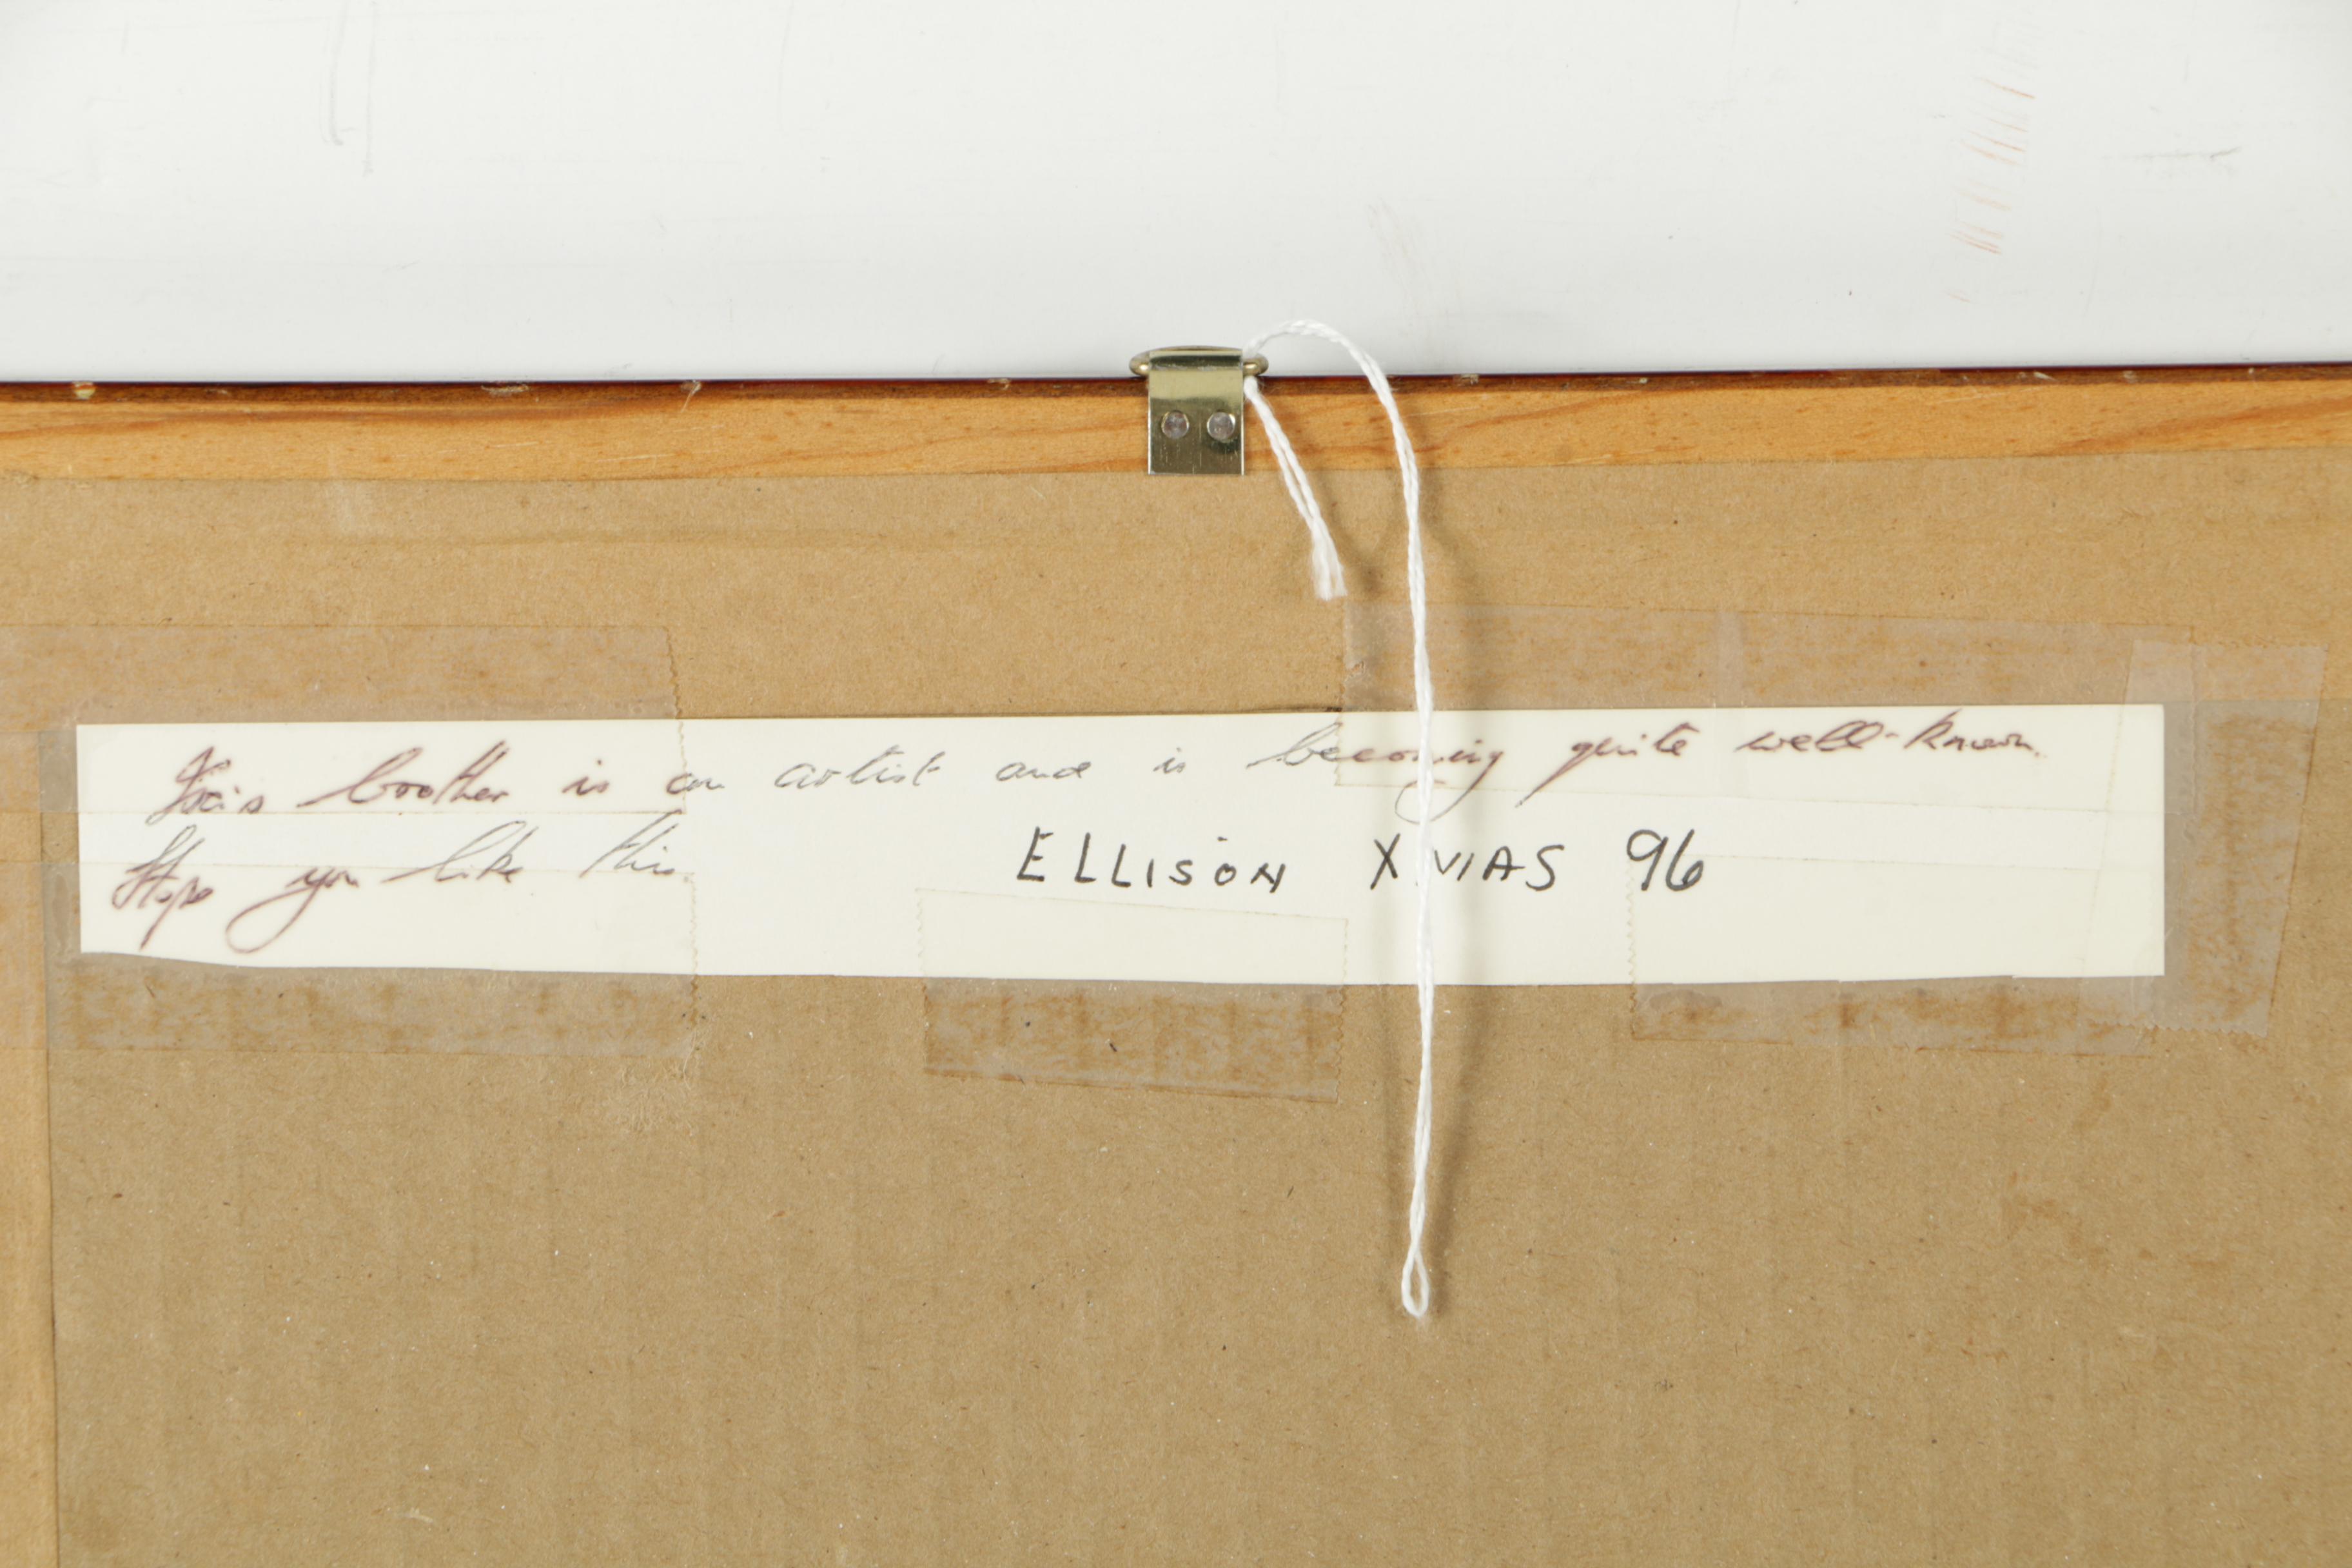 brother is an artist and is becoming quite well-known.
Hope you like this.
ELLISON XMAS 96